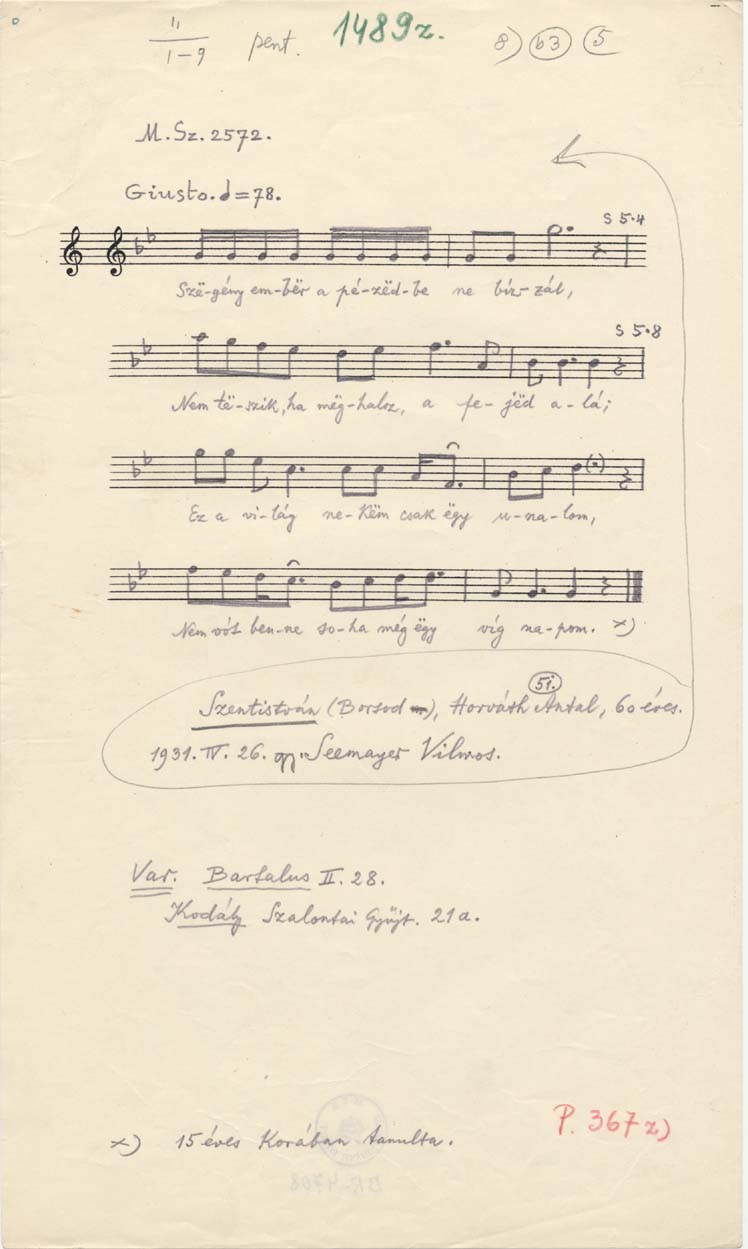 11
1-9 pent. 1489z. 8) b3 5
M. Sz. 2572.
Giusto. = 78.
S 5·4
Szë-gény em-bër a pé-zëd-be ne bíz-zál,
S 5·8
Nem të-szik, ha mëg-halsz, a fe-jëd a-lá;
Ez a vi-lág ne-këm csak ëgy u-na-lom,
Nem vót ben-ne so-ha még ëgy víg na-pom. x)
Szentistván (Borsod), Horváth 51. Antal, 60 éves.
1931. IV. 26. gy. Seemayer Vilmos.
Var. Bartalus II. 28.
Kodály Szalontai Gyűjt. 21a.
P. 367 z)
x) 15 éves korában tanulta.